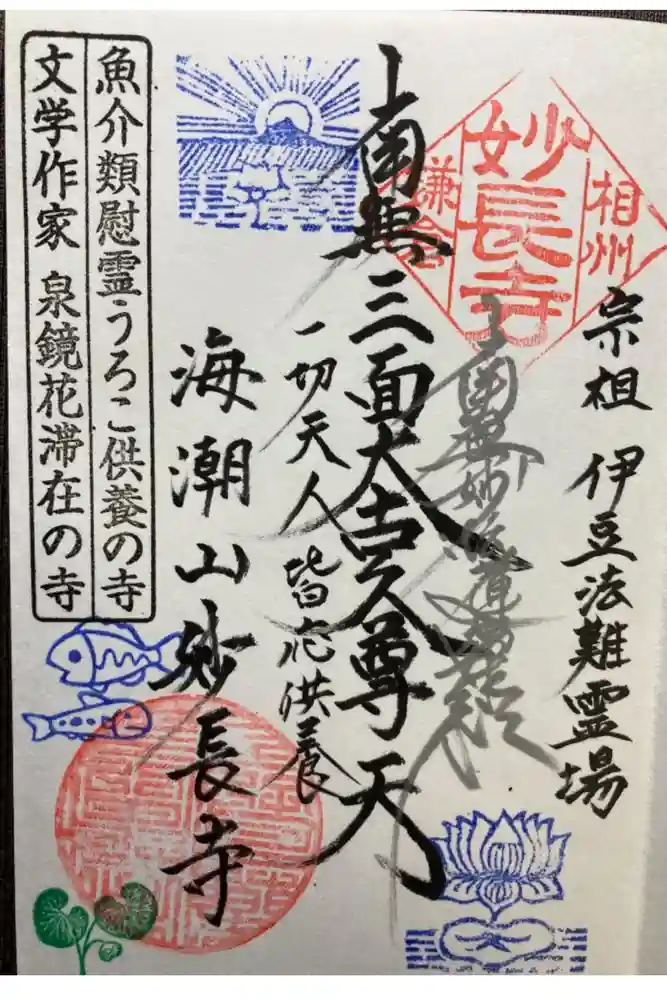 相州
妙長寺
鎌倉
宗祖 伊豆法難霊場
南無三面大黒尊天
一切天人 皆応供養
海潮山 妙長寺
魚介類慰霊うろこ供養の寺
文学作家 泉鏡花滞在の寺